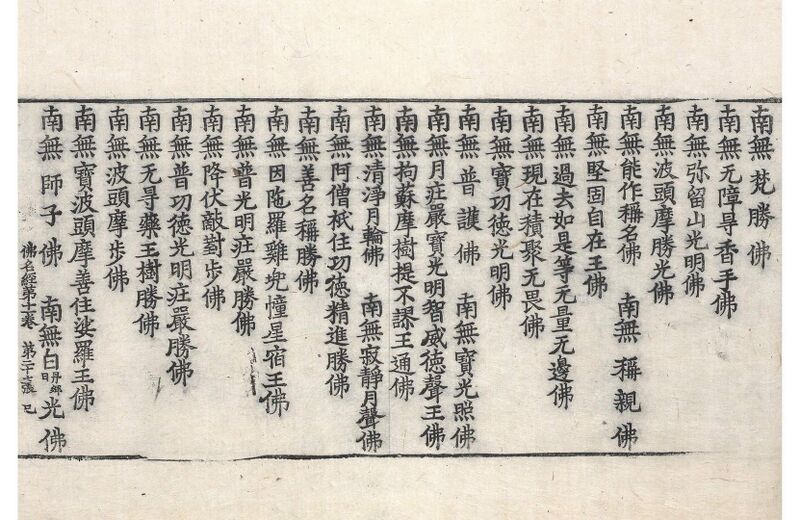 南無梵勝佛
南無无障㝵香手佛
南無弥留山光明佛
南無波頭摩勝光佛
南無能作稱名佛 南無稱親佛
南無堅固自在王佛
南無過去如是等无量无邊佛
南無現在積聚无畏佛
南無寶功德光明佛
南無普護佛 南無寶光照佛
南無月㽵嚴寶光明智威德聲王佛
南無拘蘇摩樹提不謬王通佛
南無清淨月輪佛 南無寂靜月聲佛
南無阿僧祇住功德精進勝佛
南無善名稱勝佛
南無因陁羅雞兜幢星宿王佛
南無普光明㽵嚴勝佛
南無降伏敵對步佛
南無普功德光明㽵嚴勝佛
南無无㝵藥王樹勝佛
南無波頭摩步佛
南無寶波頭摩善住娑羅王佛
南無師子佛 南無白丹鄉日光佛
佛名經第十一卷 第二十七張